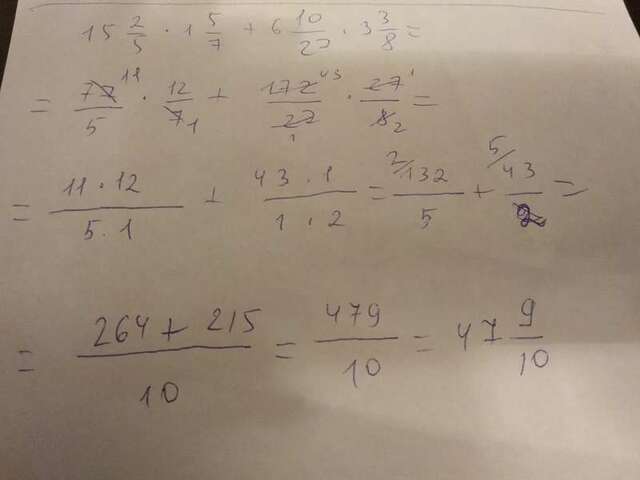 15 2/5 · 1 5/7 + 6 10/27 · 3 3/8 =
= 77/5 11 · 12/7 1 + 172/27 43 1 · 27/8 1 2 =
= 11 · 12/5 · 1 + 43 · 1/1 · 2 = 2/ 132/5 + 5/ 43/2 =
= 264 + 215/10 = 479/10 = 47 9/10